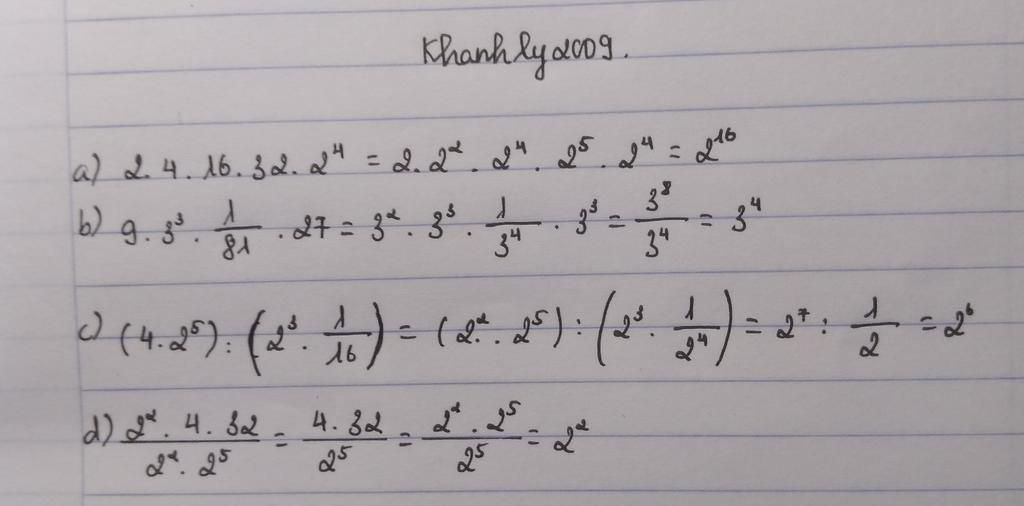 Khanhly2009.
a) 2.4.16.32.2⁴ = 2.2².2⁴.2⁵.2⁴ = 2¹⁶
b) 9.3³.1/81.27 = 3².3³.1/3⁴.3³ = 3⁸/3⁴ = 3⁴
c) (4.2⁵):(2³.1/16) = (2²..2⁵):(2³.1/2⁴) = 2⁷:1/2 = 2⁶
d) 2².4.32/2².2⁵ = 4.32/2⁵ = 2².2⁵/2⁵ = 2²